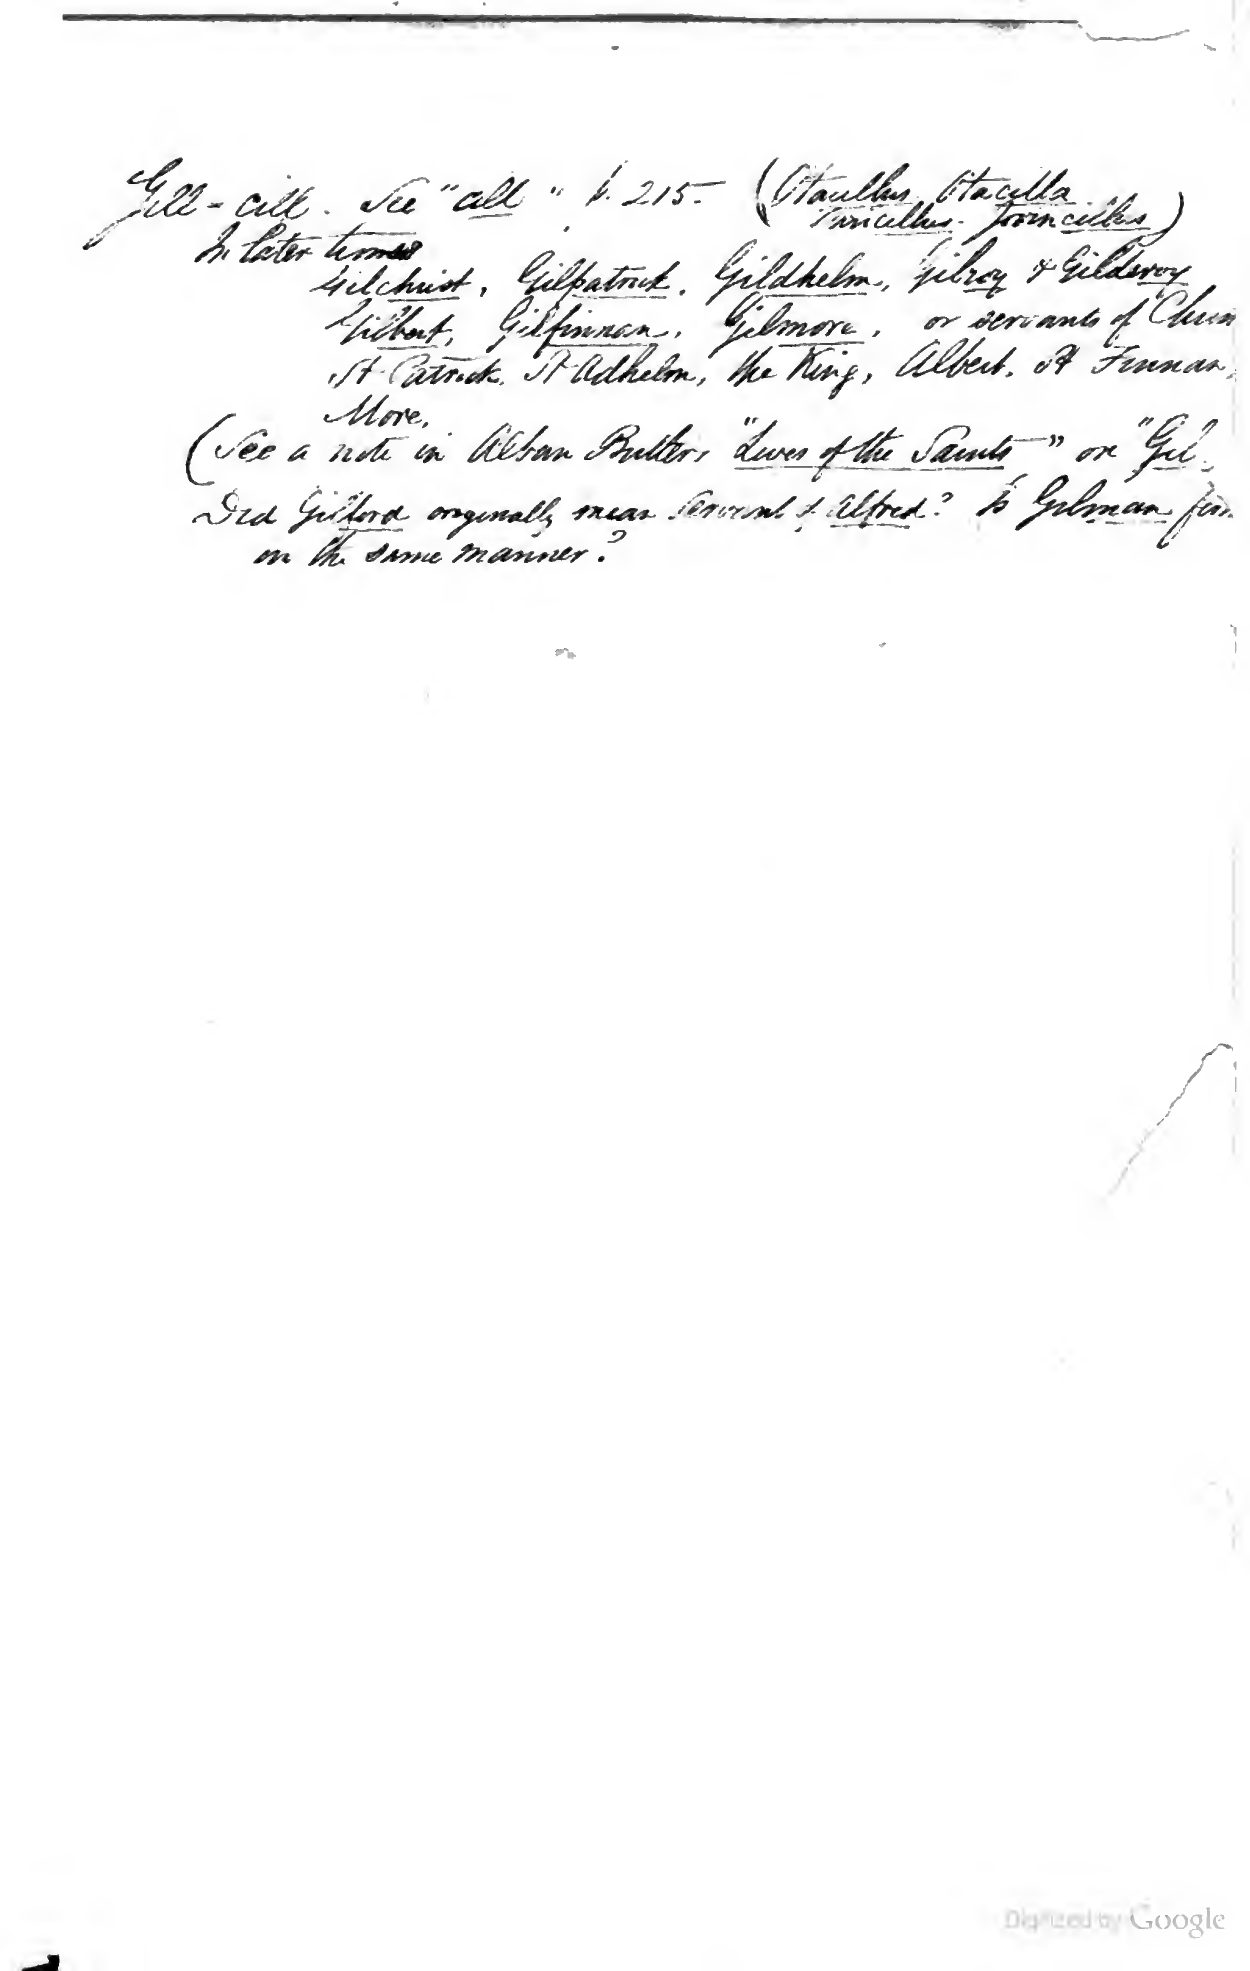 Gill - cill. See "cill" p. 215 - (Otacillus, Otacilla
Juricillus.
In later times
Gilchrist, Gilpatrick, Gildhelm, Gilroy & Gilderoy
Gilbert, Gilfinnan, Gilmore, or servants of
St Patrick, St Adhelm, the King, Albert, St Finnan,
More.
(See a note in Alban Butler's "Lives of the Saints" on "Gil
Did Gilford originally mean servant of Alfred? Is Gilman
in the same manner?
Digitized by Google